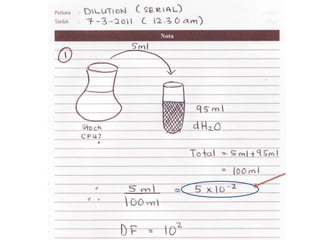 Perkara : DILUTION (SERIAL)
Tarikh : 7-3-2011 (12.30 am)
Nota
1
5ml
Stock
CFU?
95ml
dH2O
Total = 5ml + 95ml
= 100ml
∴ 5ml / 100ml = 5 x 10^-2
DF = 10^2